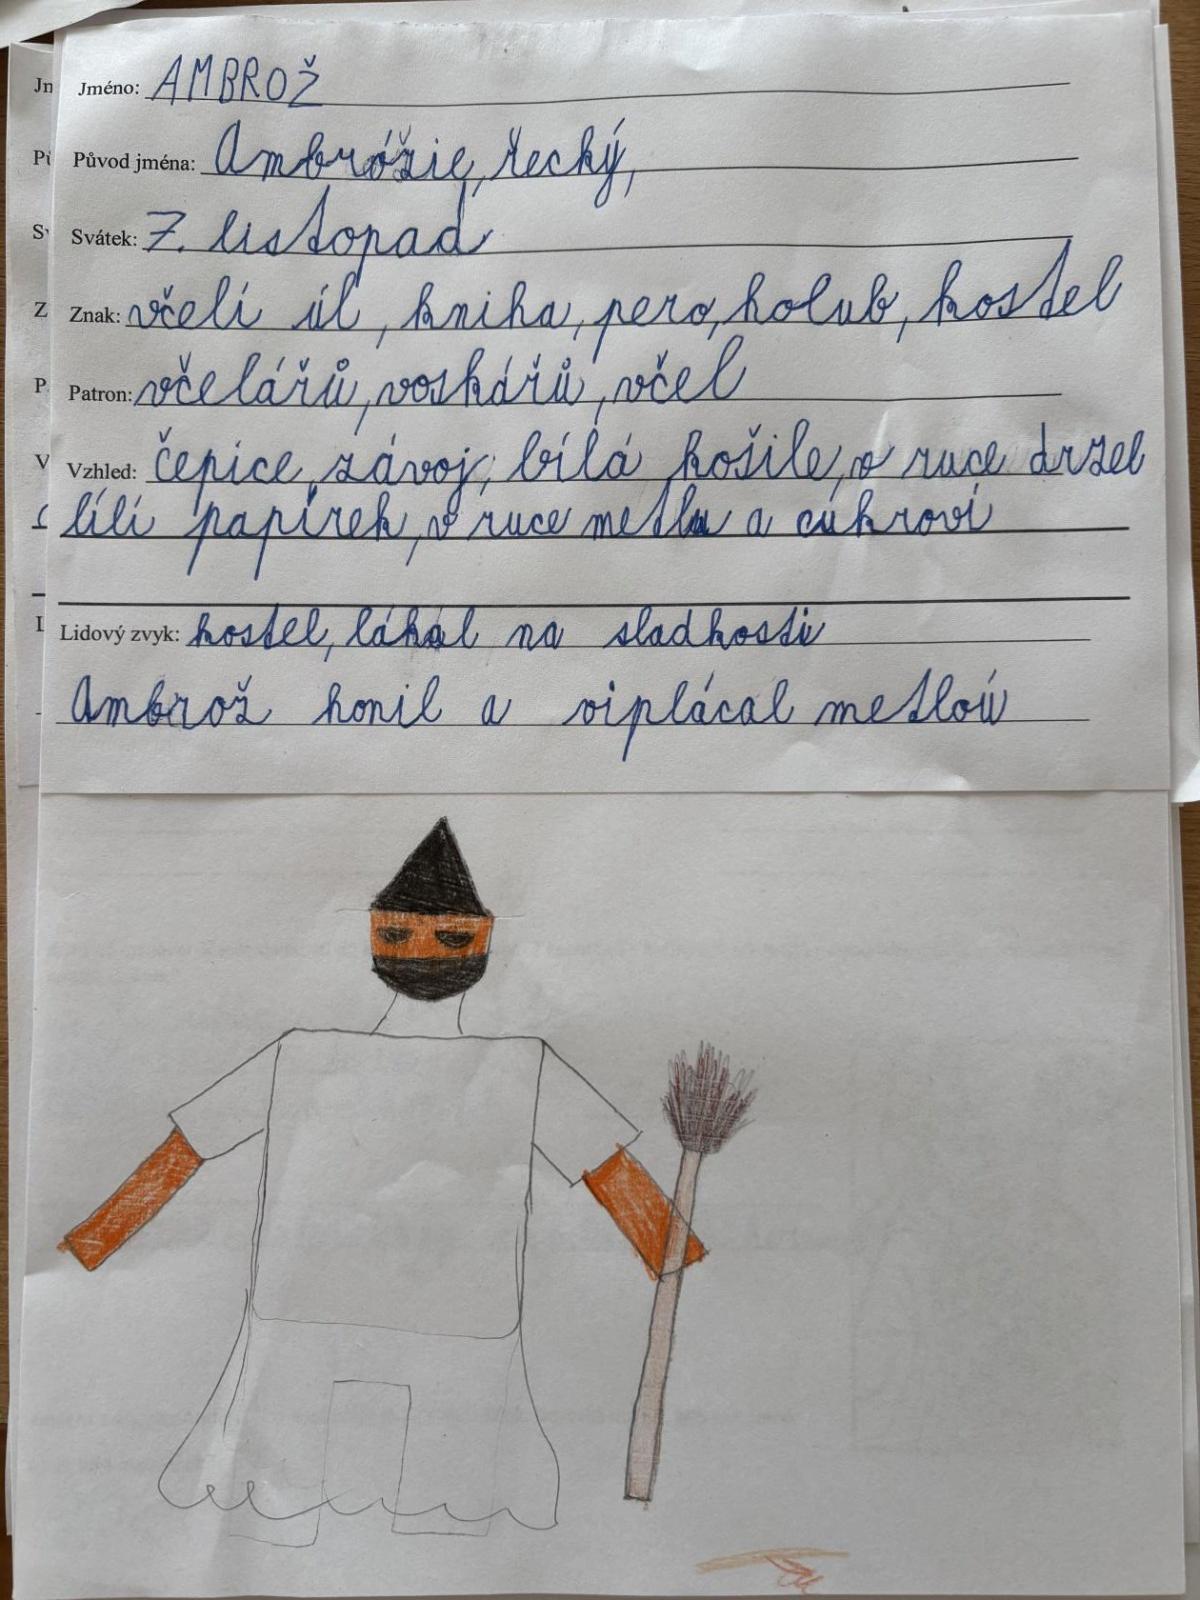 Jméno: AMBROŽ
Původ jména: Ambrózie, řecký,
Svátek: 7. listopad
Znak: včelí úl, kniha, pero, holub, kostel
Patron: včelářů, voskářů, včel
Vzhled: čepice, závoj, bílá košile, v ruce držel
lílí papírek, v ruce metlu a cukroví
Lidový zvyk: kostel, lákal na sladkosti
Ambrož honil a viplácal metloú